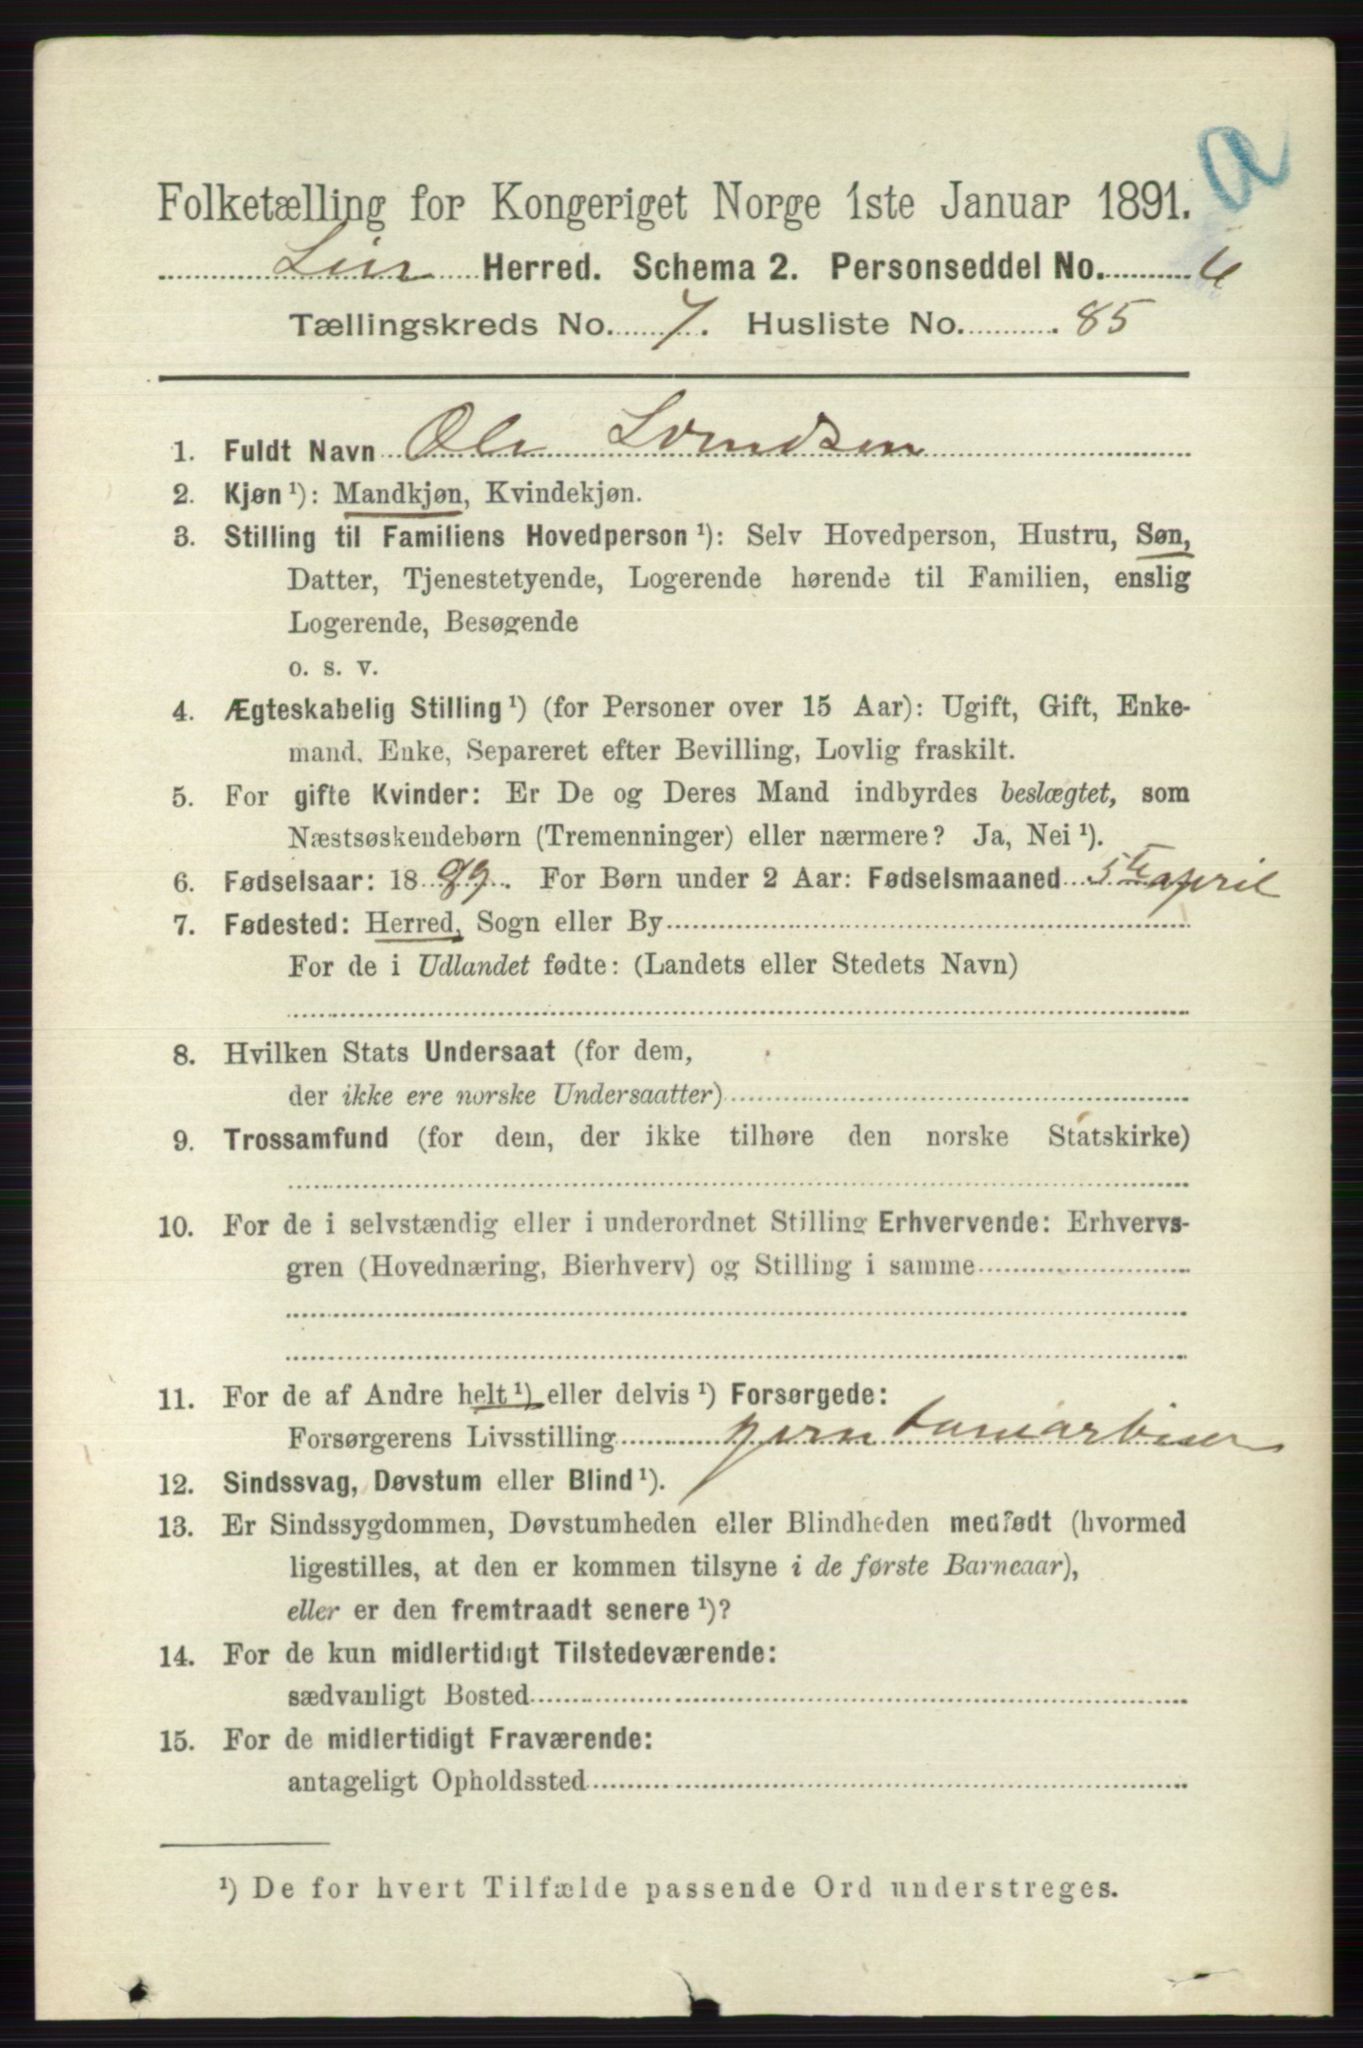 a
Folketælling for Kongeriget Norge 1ste Januar 1891.
Lier Herred. Schema 2. Personseddel No. 6
Tællingskreds No. 7. Husliste No. 85
1. Fuldt Navn Ole
2. Kjøn ¹): Mandkjøn, Kvindekjøn.
3. Stilling til Familiens Hovedperson ¹): Selv Hovedperson, Hustru, Søn,
Datter, Tjenestetyende, Logerende hørende til Familien, enslig
Logerende, Besøgende
o. s. v.
4. Ægteskabelig Stilling ¹) (for Personer over 15 Aar): Ugift, Gift, Enke-
mand, Enke, Separeret efter Bevilling, Lovlig fraskilt.
5. For gifte Kvinder: Er De og Deres Mand indbyrdes beslægtet, som
Næstsøskendebørn (Tremenninger) eller nærmere? Ja, Nei ¹).
6. Fødselsaar: 1889. For Børn under 2 Aar: Fødselsmaaned 5te april
7. Fødested: Herred, Sogn eller By
For de i Udlandet fødte: (Landets eller Stedets Navn)
8. Hvilken Stats Undersaat (for dem,
der ikke ere norske Undersaatter)
9. Trossamfund (for dem, der ikke tilhøre den norske Statskirke)
10. For de i selvstændig eller i underordnet Stilling Erhvervende: Erhvervs-
gren (Hovednæring, Bierhverv) og Stilling i samme
11. For de af Andre helt ¹) eller delvis ¹) Forsørgede:
Forsørgerens Livsstilling
12. Sindssvag, Døvstum eller Blind ¹).
13. Er Sindssygdommen, Døvstumheden eller Blindheden medfødt (hvormed
ligestilles, at den er kommen tilsyne i de første Barneaar),
eller er den fremtraadt senere ¹)?
14. For de kun midlertidigt Tilstedeværende:
sædvanligt Bosted
15. For de midlertidigt Fraværende:
antageligt Opholdssted
¹) De for hvert Tilfælde passende Ord understreges.